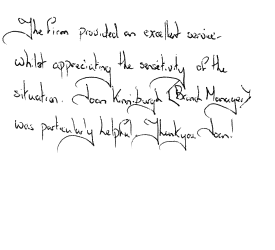 The Firm provided an excellent service
whilst appreciating the sensitivity of the
situation. Joan Kinniburgh (Branch Manager)
was particularly helpful. Thankyou Joan!